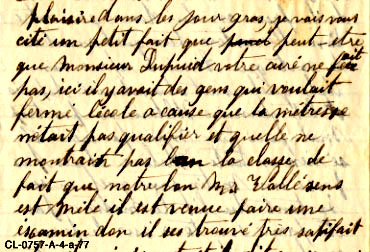 plaisire dans les jour gras, je vais vous
cité un petit fait que peut-etre
que Monsieur Dupuid votre curé ne fait
pas, ici il y avait des gens qui voulait
fermé l'école a cause que la métresse
nétait pas qualifier et quelle ne
montrait pas bien la classe, de
fait que notre bon Mr Vallé sens
est mélé il est venue faire une
examin don il ses trouvé très satifait
CL-0757-A-4-a-77